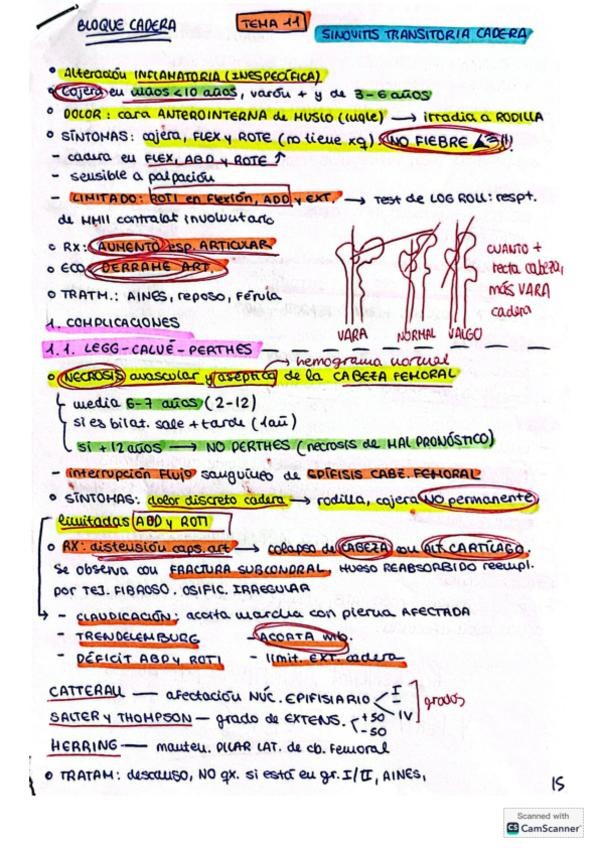 BLOQUE CADERA
TEMA 11
SINOVITIS TRANSITORIA CADERA
• Alteración INFLAMATORIA (INESPECÍFICA)
• Cojera en niños < 10 años, varón + y de 3-6 años
• DOLOR: cara ANTEROINTERNA de MUSLO (ingle) → irradia a RODILLA
• SÍNTOMAS: cojera, FLEX y ROTE (no tiene xq). NO FIEBRE
- cadera en FLEX, ABD y ROTE ↑
- sensible a palpación
- LIMITADO: ROTI en flexión, ADD y EXT. → Test de LOG ROLL: respt.
de MMII contralat involuntario
• RX: AUMENTO esp. ARTICULAR
• ECO: DERRAME ART.
• TRATM.: AINES, reposo, férula
CUANTO +
recta cabeza,
más VARA
cadera
VARA NORMAL VALGO
1. COMPLICACIONES
1.1. LEGG-CALVÉ-PERTHES
→ hemograma normal
• NECROSIS avascular y aséptica de la CABEZA FEMORAL
media 6-7 años (2-12)
si es bilat. sale + tarde (1 añ)
si + 12 años → NO PERTHES (necrosis de MAL PRONÓSTICO)
- interrupción Flujo sanguíneo de EPÍFISIS CABE. FEMORAL
• SÍNTOMAS: dolor discreto cadera → rodilla, cojera NO permanente
limitadas ABD y ROTI
• RX: distensión caps. art → colapso de CABEZA con ALT. CARTÍLAGO.
Se observa con FRACTURA SUBCONDRAL, HUESO REABSORBIDO reempl.
por TEJ. FIBROSO. OSIFIC. IRREGULAR
- CLAUDICACIÓN: acorta marcha con pierna AFECTADA
- TRENDELEMBURG - ACORTA mb.
- DÉFICIT ABD y ROTI - limit. EXT. cadera
CATTERALL — afectación NÚC. EPIFISIARIO < I IV ] grados
SALTER y THOMPSON — grado de EXTENS. < +50 -50
HERRING — manten. PILAR LAT. de cb. femoral
• TRATAM: descanso, NO qx. si está en gr. I/II, AINES,
15
Scanned with
CS CamScanner